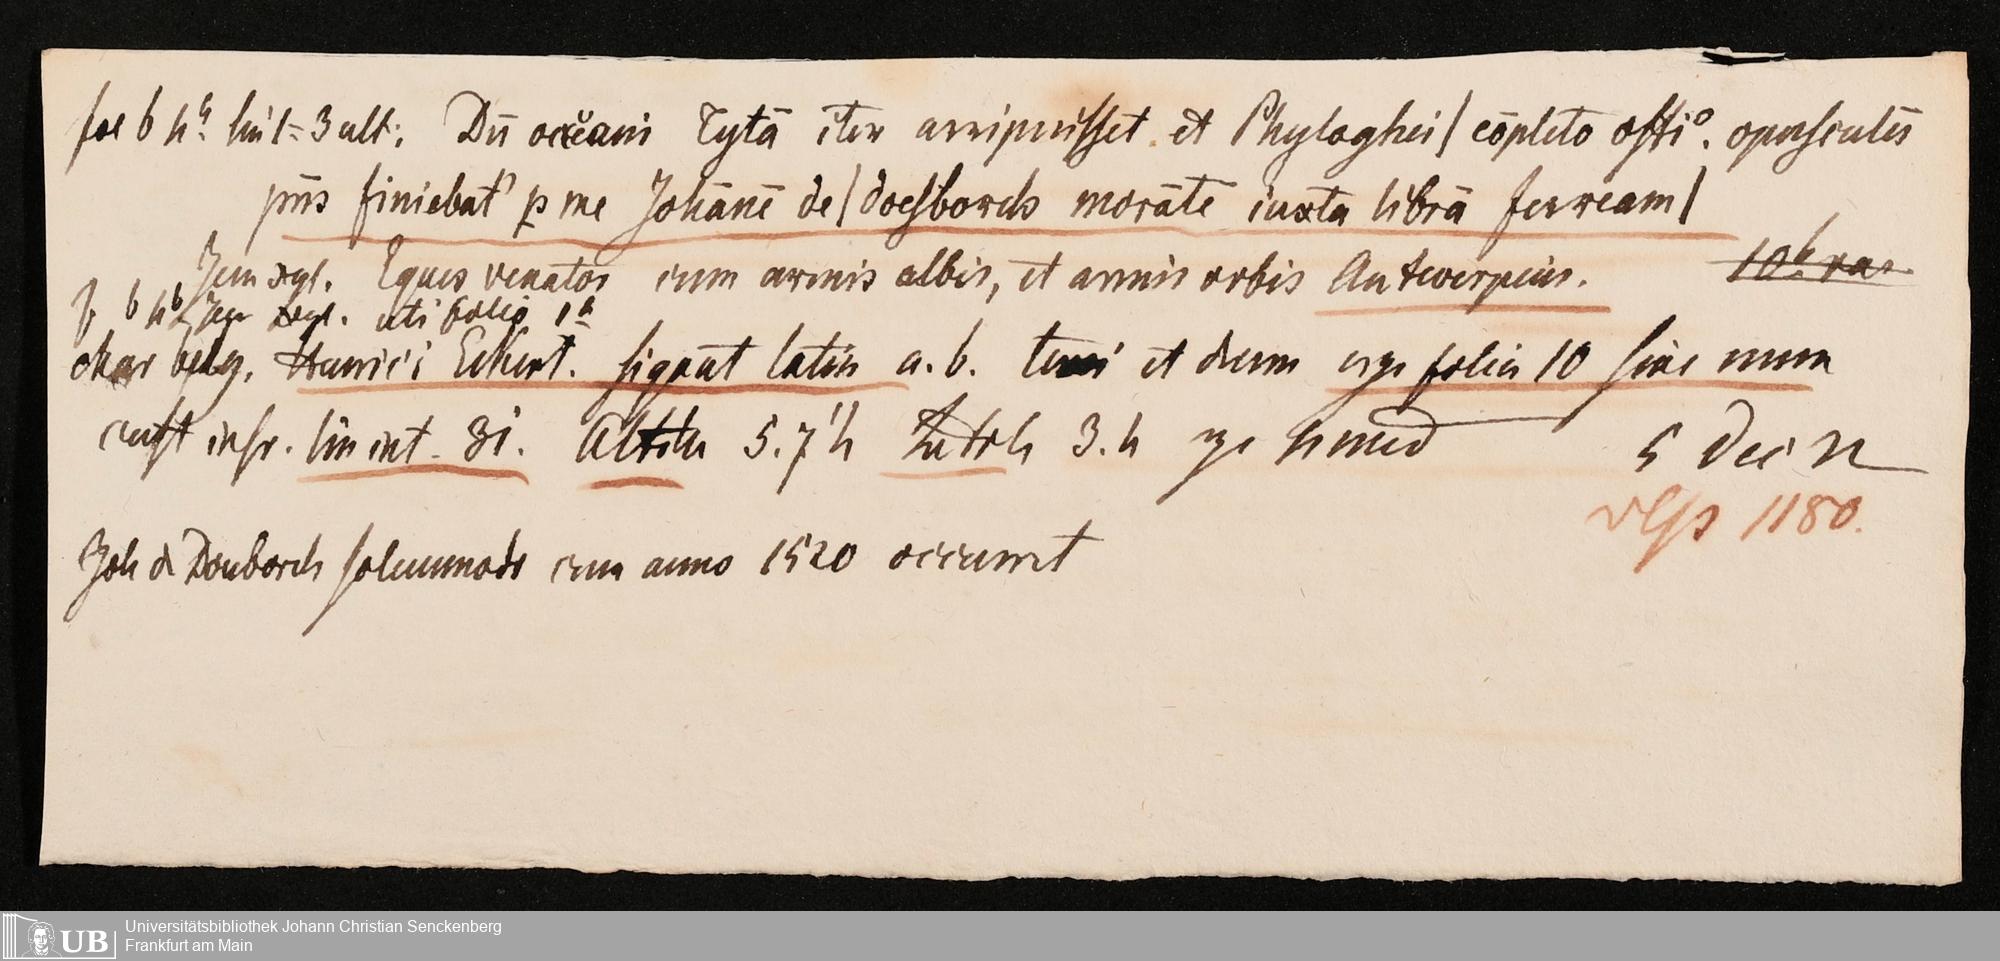 fol b h᷎ lin 1=3 ult: Dū oceani Tytā iter arripuisset et Phylaghei / cōpleto offi°. opusculūs
pn̄s finiebat' p me Johānē de / doesborch morātē iuxta librā ferream /
Jem xyl. Eques venator cum armis albis, et armis orbis Antwerpius.
f. b hᵇ xyl. uti folio 1ᵃ
char belg. Henrici Eckert. signat latin a. b. terni et duum ergo folia 10 sine num
cust inscr. lin int. 31. Altit 5.7 h Latit 3. h
5 Dec
1180.
Joh d Donborch solummodo cum anno 1520 occurrit
Universitätsbibliothek Johann Christian Senckenberg
Frankfurt am Main
UB